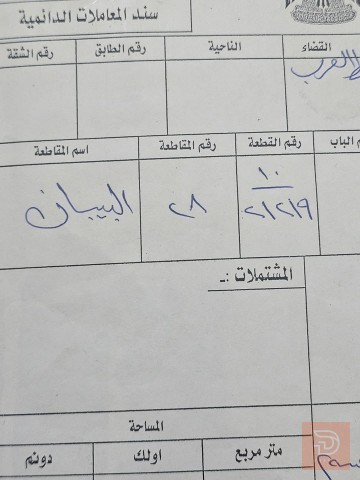 سند المعاملات الدائمية
القضاء الناحية رقم الطابق رقم الشقة
ط العرب
الباب رقم القطعة رقم المقاطعة اسم المقاطعة
١٠
٢١٢١٩ ٢٨ البيبان
المشتملات :ـ
المساحة
متر مربع اولك دونم